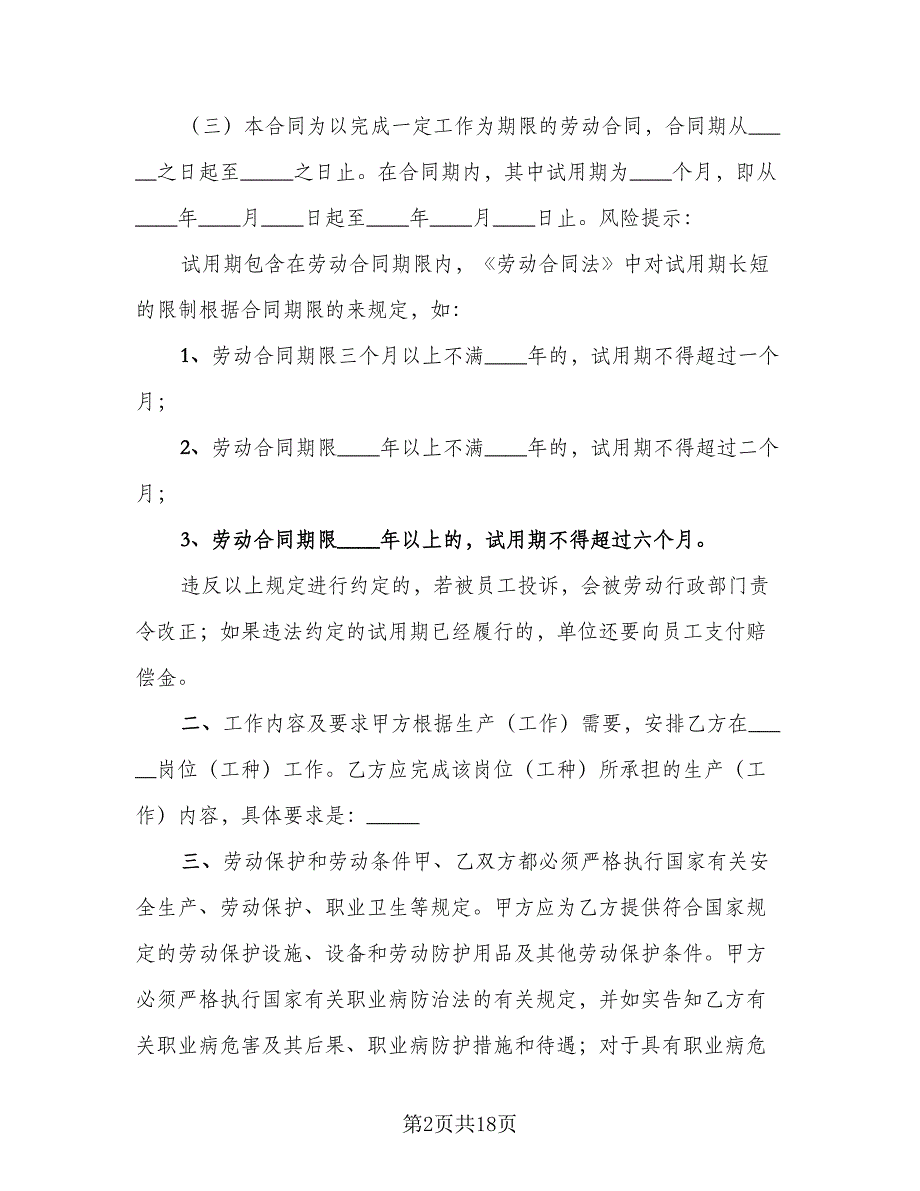 （三）本合同为以完成一定工作为期限的劳动合同，合同期从___
__之日起至_____之日止。在合同期内，其中试用期为____个月，即从
____年____月____日起至____年____月____日止。风险提示：
试用期包含在劳动合同期限内，《劳动合同法》中对试用期长短
的限制根据合同期限的来规定，如：
1、劳动合同期限三个月以上不满____年的，试用期不得超过一个
月；
2、劳动合同期限____年以上不满____年的，试用期不得超过二个
月；
3、劳动合同期限____年以上的，试用期不得超过六个月。
违反以上规定进行约定的，若被员工投诉，会被劳动行政部门责
令改正；如果违法约定的试用期已经履行的，单位还要向员工支付赔
偿金。
二、工作内容及要求甲方根据生产（工作）需要，安排乙方在___
__岗位（工种）工作。乙方应完成该岗位（工种）所承担的生产（工
作）内容，具体要求是：_____
三、劳动保护和劳动条件甲、乙双方都必须严格执行国家有关安
全生产、劳动保护、职业卫生等规定。甲方应为乙方提供符合国家规
定的劳动保护设施、设备和劳动防护用品及其他劳动保护条件。甲方
必须严格执行国家有关职业病防治法的有关规定，并如实告知乙方有
关职业病危害及其后果、职业病防护措施和待遇；对于具有职业病危
第2页共18页